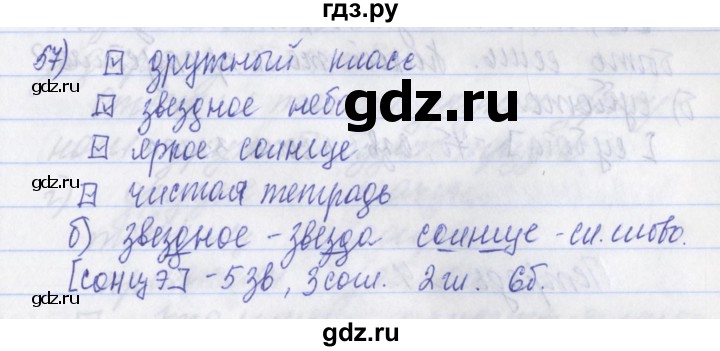 гдз.ру
57) ☑ дружный класс
gdz.ru gdz.ru
☑ звездное небо
gdz.ru
☑ яркое солнце
gdz.ru gdz.ru
☑ чистая тетрадь
б) звездное - звезда солнце - сл. слово.
[сонцэ] - 5 зв, 3 сог. 2 гл. 6б.
gdz.ru gdz.ru
gdz.ru